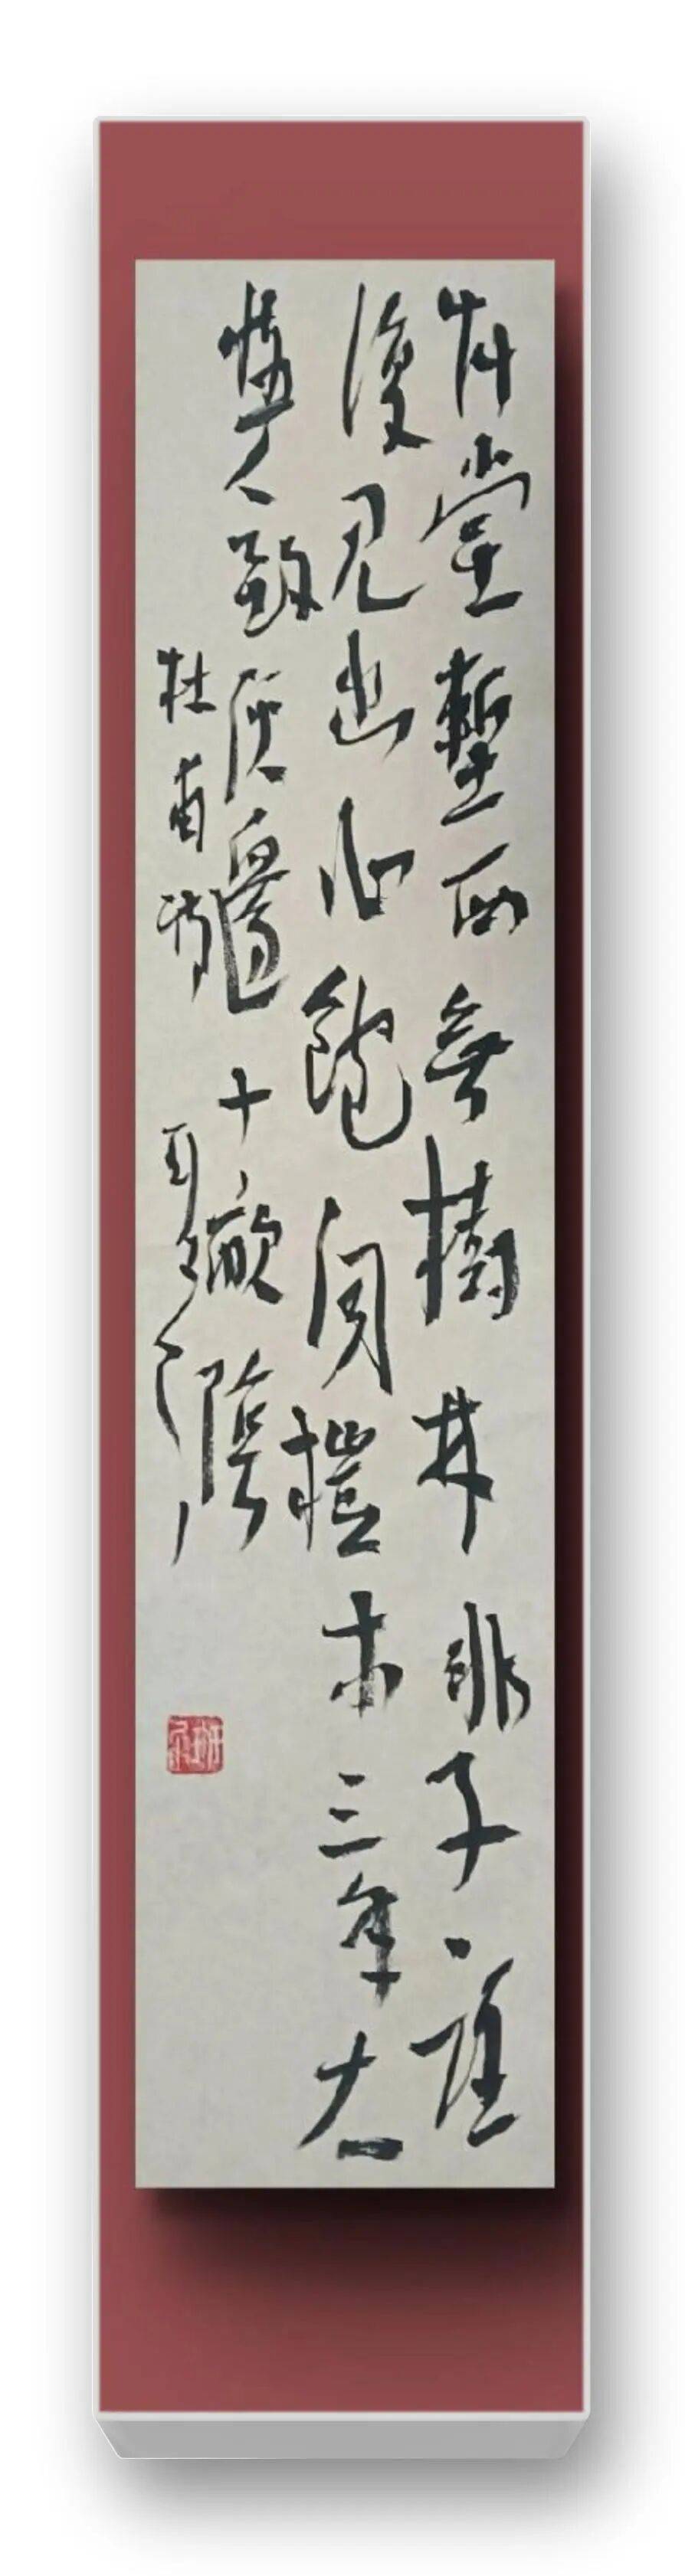 艸堂塹西無樹林非子誰
復見幽心飽聞榿木三年大
與致溪邊十畝陰
杜甫詩